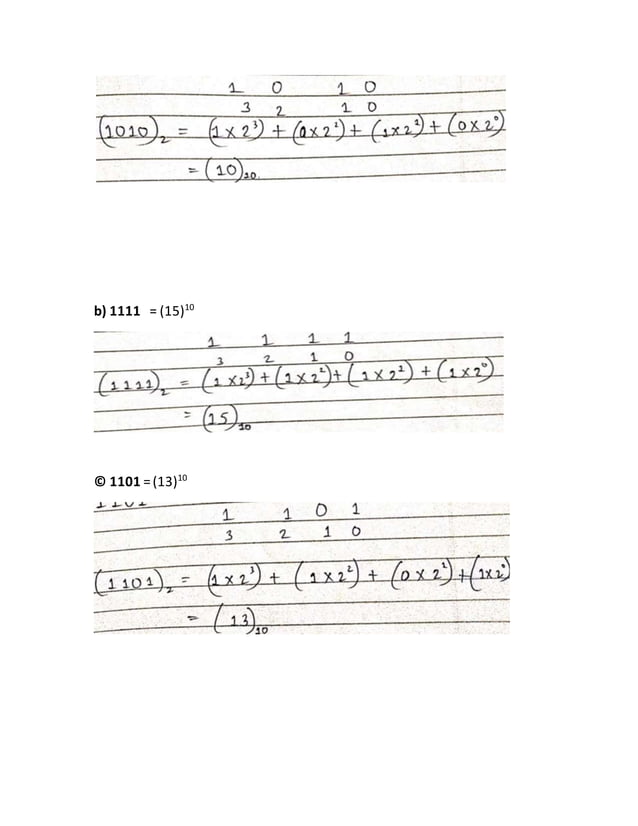 1 0 1 0
3 2 1 0
(1010)₂ = (1 x 2³) + (0 x 2²) + (1x2¹) + (0 x 2⁰)
= (10)₁₀.
b) 1111 = (15)¹⁰
1 1 1 1
3 2 1 0
(1111)₂ = (1 x2³) + (1 x 2²) + (1 x 2¹) + (1 x 2⁰)
= (15)₁₀
© 1101 = (13)¹⁰
1101
1 1 0 1
3 2 1 0
(1101)₂ = (1 x 2³) + (1 x 2²) + (0 x 2¹) + (1x 2⁰)
= (13)₁₀